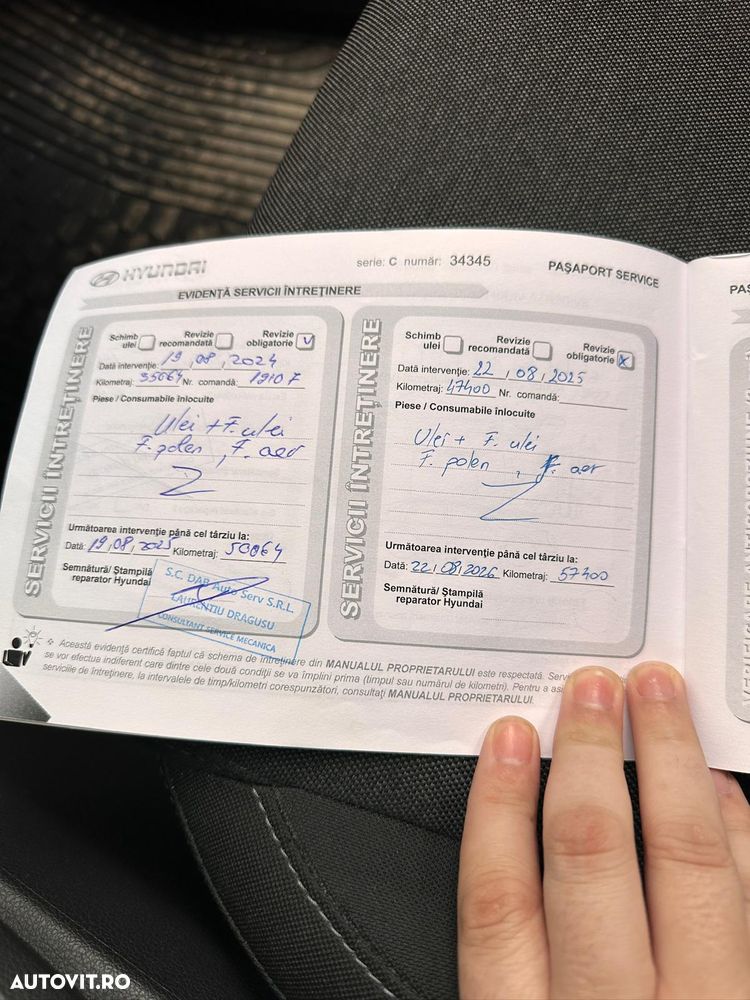 HYUNDAI
serie: C număr: 34345
PAŞAPORT SERVICE
EVIDENŢĂ SERVICII ÎNTREŢINERE
SERVICII ÎNTREŢINERE
Schimb ulei
Revizie recomandată
Revizie obligatorie V
Dată intervenţie: 19,08,2024
Kilometraj: 35064 Nr. comandă: 19107
Piese / Consumabile înlocuite
Ulei + F. ulei
F. polen, F. aer
Următoarea intervenţie până cel târziu la:
Dată: 19,08,2025 Kilometraj: 50064
Semnătură/ Ştampilă
reparator Hyundai
S.C. DAB Auto Serv S.R.L.
LAURENTIU DRAGUSU
CONSULTANT SERVICE MECANICA
SERVICII ÎNTREŢINERE
Schimb ulei
Revizie recomandată
Revizie obligatorie X
Dată intervenţie: 22,08,2025
Kilometraj: 47400 Nr. comandă:
Piese / Consumabile înlocuite
Ulei + F. ulei
F. polen, F. aer
Următoarea intervenţie până cel târziu la:
Dată: 22,08,2026 Kilometraj: 57400
Semnătură/ Ştampilă
reparator Hyundai
Această evidenţă certifică faptul că schema de întreţinere din MANUALUL PROPRIETARULUI este respectată.
se vor efectua indiferent care dintre cele două condiţii se va împlini prima (timpul sau numărul de kilometri). Pentru a
serviciile de întreţinere, la intervalele de timp/kilometri corespunzători, consultaţi MANUALUL PROPRIETARULUI.
AUTOVIT.RO